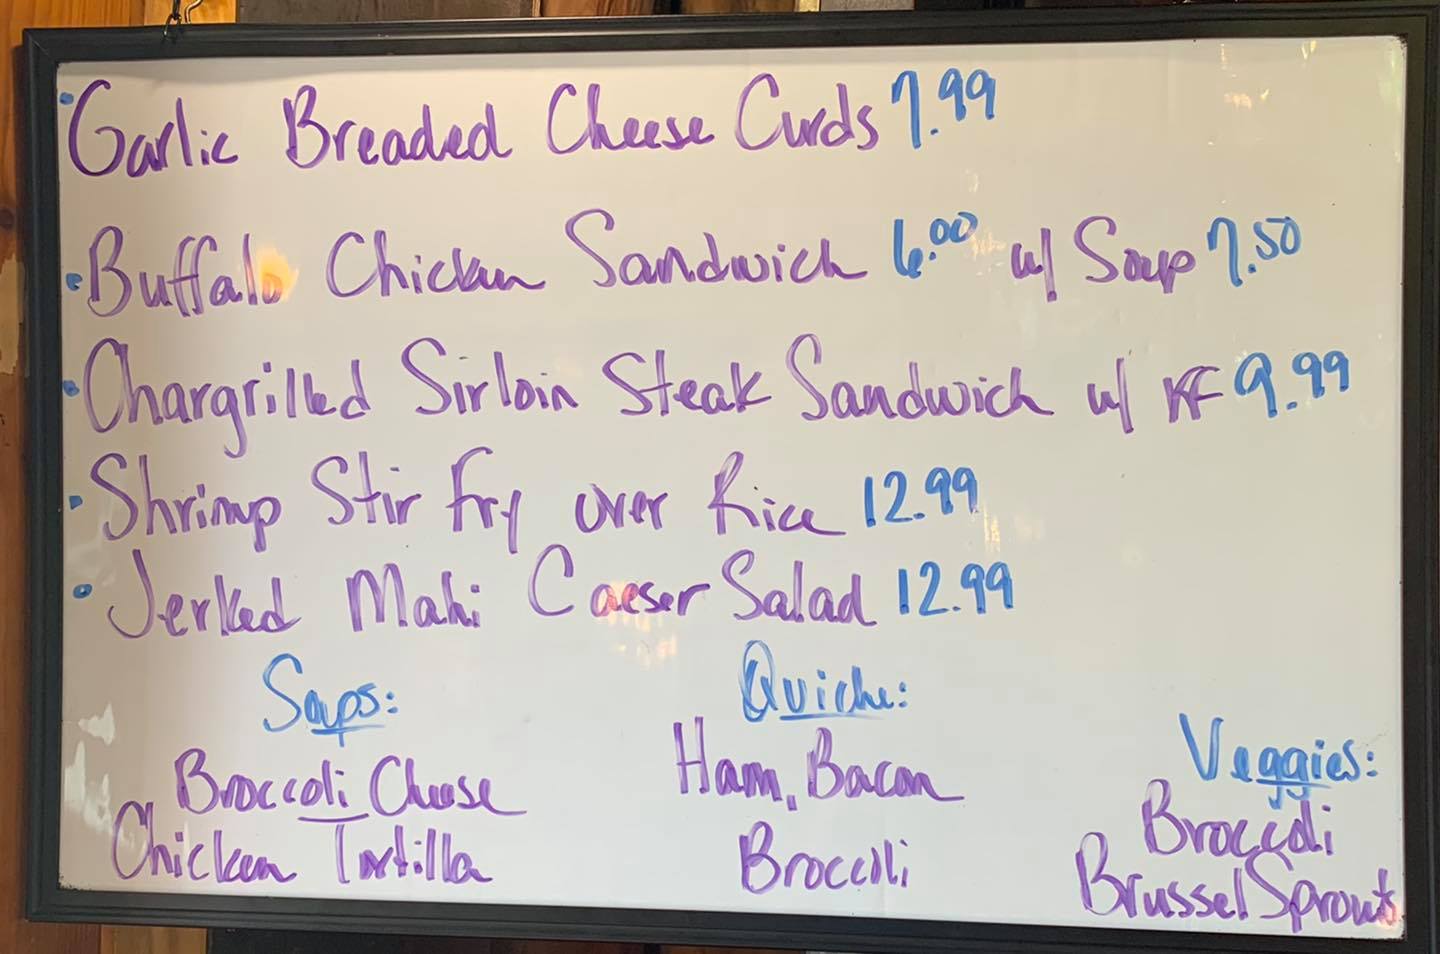 • Garlic Breaded Cheese Curds 7.99
• Buffalo Chicken Sandwich 6.00 w/ Soup 7.50
• Chargrilled Sirloin Steak Sandwich w/ FF 9.99
• Shrimp Stir Fry over Rice 12.99
• Jerked Mahi Caeser Salad 12.99
Soups:
Broccoli Cheese
Chicken Tortilla
Quiche:
Ham, Bacon
Broccoli
Veggies:
Broccoli
Brussel Sprouts